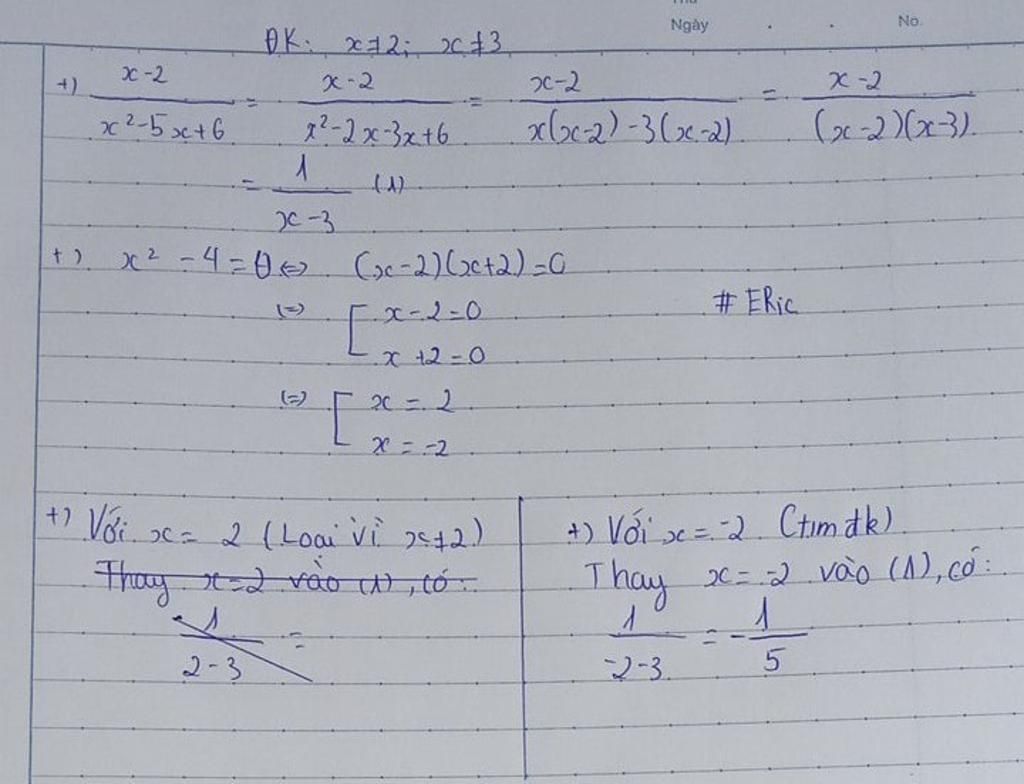 Thứ
Ngày . . No.
ĐK: x≠2; x≠3
+) x-2 / x²-5x+6 = x-2 / x²-2x-3x+6 = x-2 / x(x-2)-3(x-2) = x-2 / (x-2)(x-3)
= 1 / x-3 (1)
+) x²-4=0 <=> (x-2)(x+2)=0
(=) [ x-2=0
x+2=0
# ERic
(=) [ x = 2
x = -2
+) Với x = 2 (Loại vì x≠2)
Thay x=2 vào (1), có:
1 / 2-3 =
+) Với x = -2 (tm đk)
Thay x = -2 vào (1), có:
1 / -2-3 = -1 / 5